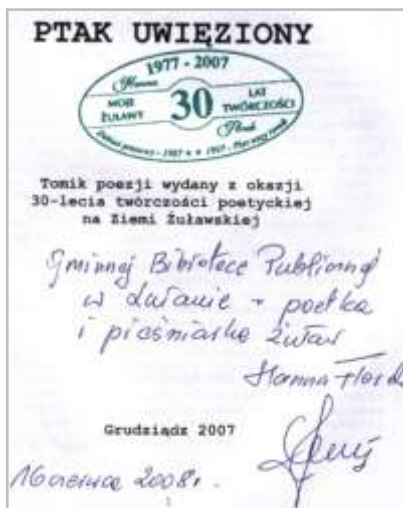 PTAK UWIĘZIONY
1977 - 2007
Hanna
MOJE
ŻUŁAWY
30
LAT
TWÓRCZOŚCI
Tomik poezji wydany z okazji
30-lecia twórczości poetyckiej
na Ziemi Żuławskiej
Gminnej Bibliotece Publicznej
w - poetka
i pieśniarka Żuław
Hanna
Grudziądz 2007
16 czerwca 2008r.
1